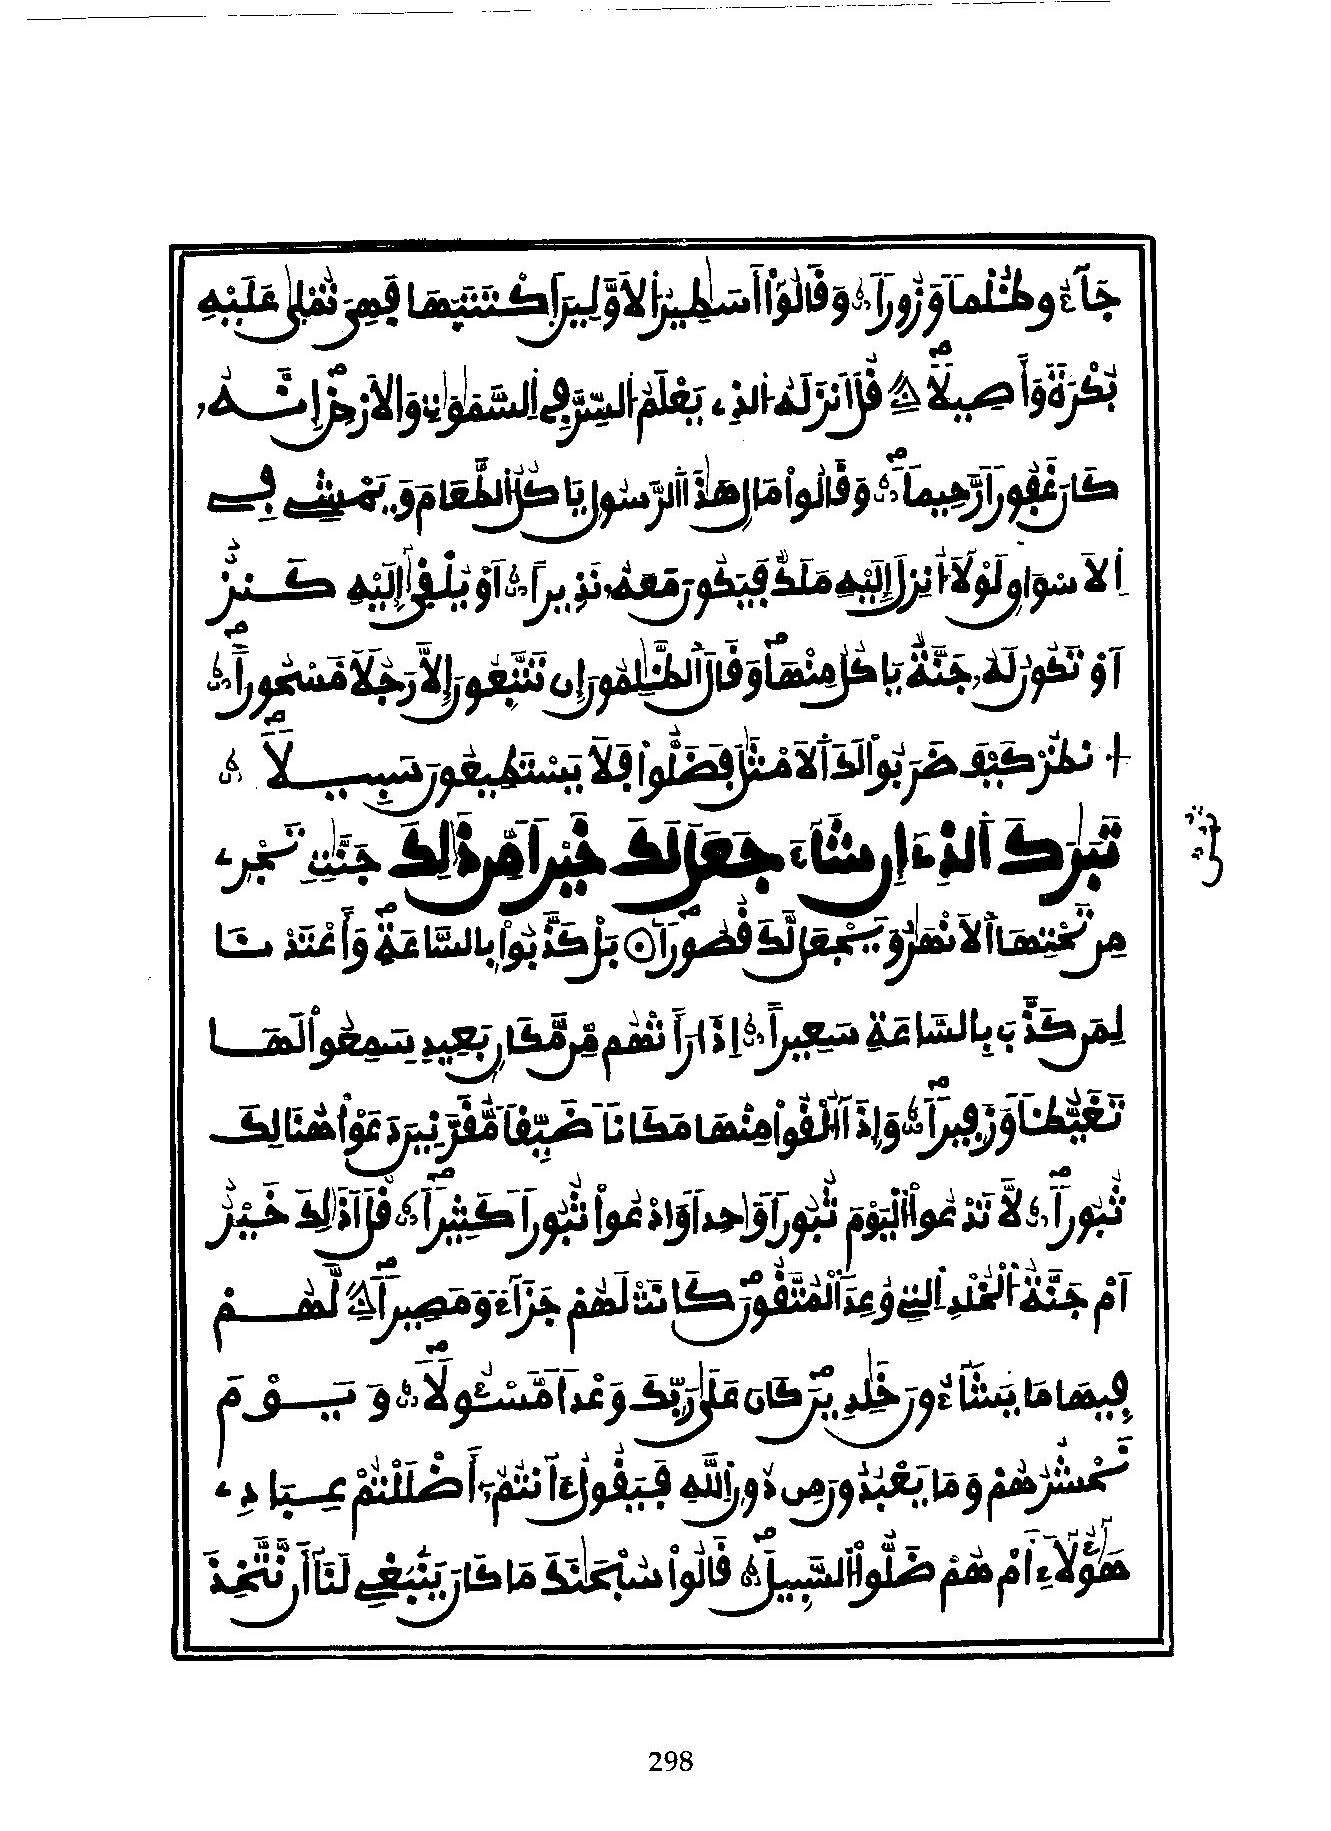 جَآءُو ظُلْماً وَزُوراً وَقَالُوٓاْ أَسَٰطِيرُ الَاوَّلِينَ اَكْتَتَبَهَا فَهِيَ تُمْلَىٰ عَلَيْهِ
بُكْرَةً وَأَصِيلًا قُلَ اَنزَلَهُ الذِے يَعْلَمُ السِّرَّ فِے السَّمَٰوَٰتِ وَالَارْضِ إِنَّهُۥ
كَانَ غَفُوراً رَّحِيماً وَقَالُواْ مَالِ هَٰذَا الرَّسُولِ يَاكُلُ الطَّعَامَ وَيَمْشِے فِے
اِلَاسْوَاقِ لَوْلَآ أُنزِلَ إِلَيْهِ مَلَكٌ فَيَكُونَ مَعَهُۥ نَذِيراً اَوْ يُلْقَىٰٓ إِلَيْهِ كَنزٌ
اَوْ تَكُونُ لَهُۥ جَنَّةٌ يَاكُلُ مِنْهَا وَقَالَ الظَّٰلِمُونَ إِن تَتَّبِعُونَ إِلَّا رَجُلًا مَّسْحُوراً
اَنظُرْ كَيْفَ ضَرَبُواْ لَكَ الَامْثَٰلَ فَضَلُّواْ فَلَا يَسْتَطِيعُونَ سَبِيلًا
تَبَٰرَكَ الذِےٓ إِن شَآءَ جَعَلَ لَكَ خَيْراً مِّن ذَٰلِكَ جَنَّٰتٍ تَجْرِے
مِن تَحْتِهَا الَانْهَٰرُ وَيَجْعَل لَّكَ قُصُوراً بَلْ كَذَّبُواْ بِالسَّاعَةِ وَأَعْتَدْنَا
لِمَن كَذَّبَ بِالسَّاعَةِ سَعِيراً اِذَا رَأَتْهُم مِّن مَّكَانٍ بَعِيدٍ سَمِعُواْ لَهَا
تَغَيُّظاً وَزَفِيراً وَإِذَآ أُلْقُواْ مِنْهَا مَكَاناً ضَيِّقاً مُّقَرَّنِينَ دَعَوْاْ هُنَالِكَ
ثُبُوراً لَّا تَدْعُواْ الْيَوْمَ ثُبُوراً وَٰحِداً وَادْعُواْ ثُبُوراً كَثِيراً قُلَ اَذَٰلِكَ خَيْرٌ
اَمْ جَنَّةُ الْخُلْدِ اِلتِے وُعِدَ الْمُتَّقُونَ كَانَتْ لَهُمْ جَزَآءً وَمَصِيراً لَّهُمْ
فِيهَا مَا يَشَآءُونَ خَٰلِدِينَ كَانَ عَلَىٰ رَبِّكَ وَعْداً مَّسْـُٔولًا وَيَوْمَ
نَحْشُرُهُمْ وَمَا يَعْبُدُونَ مِن دُونِ اِللَّهِ فَيَقُولُ ءَآنتُمُۥٓ أَضْلَلْتُمْ عِبَادِے
هَٰٓؤُلَآءِ اَمْ هُمْ ضَلُّواْ السَّبِيلَ قَالُواْ سُبْحَٰنَكَ مَا كَانَ يَنۢبَغِے لَنَآ أَن نَّتَّخِذَ
298